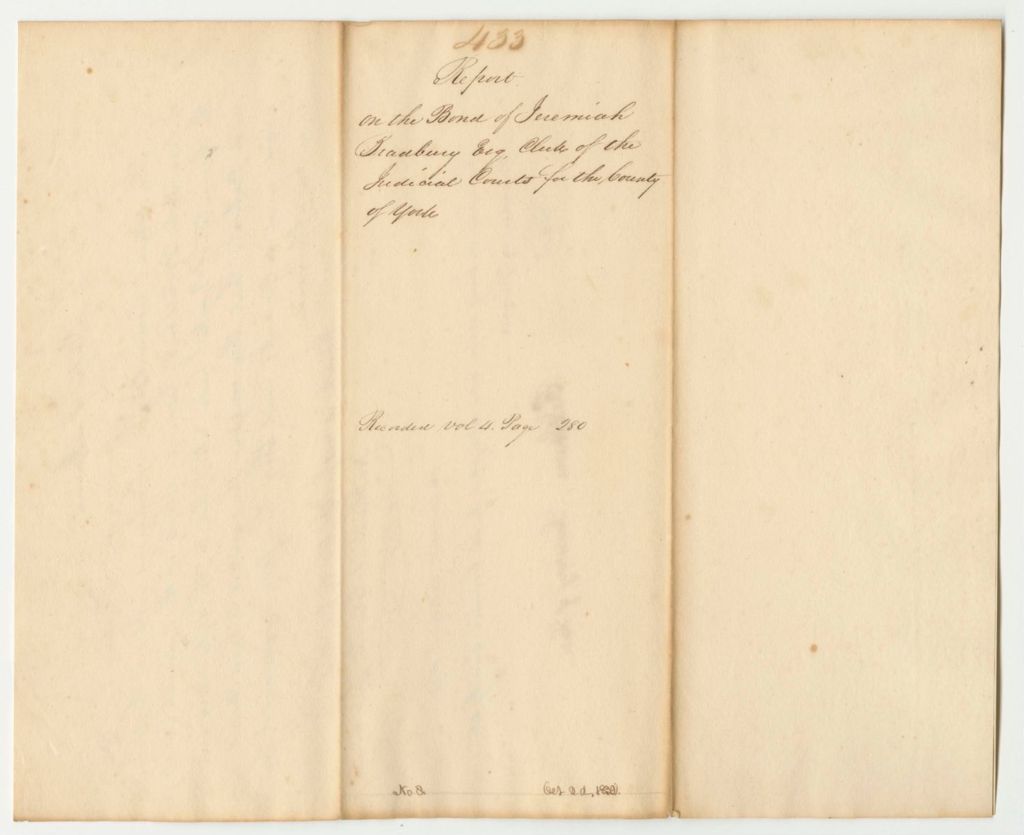 433
Report
on the Bond of Jeremiah
Bradbury Esq, Clerk of the
Judicial Courts for the County
of York
Recorded vol 4. Page 280
No 8. Oct 2d,